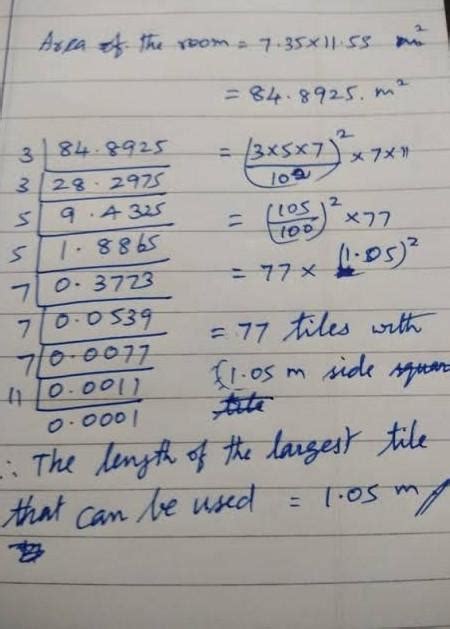 Area of the room = 7.35×11.55 m²
= 84.8925. m²
3 | 84.8925
3 | 28.2975
5 | 9.4325
5 | 1.8865
7 | 0.3773
7 | 0.0539
7 | 0.0077
11 | 0.0011
0.0001
= (3×5×7/100)² × 7×11
= (105/100)² ×77
= 77 × (1.05)²
= 77 tiles with
1.05 m side square
tile
∴ The length of the largest tile
that can be used = 1.05 m